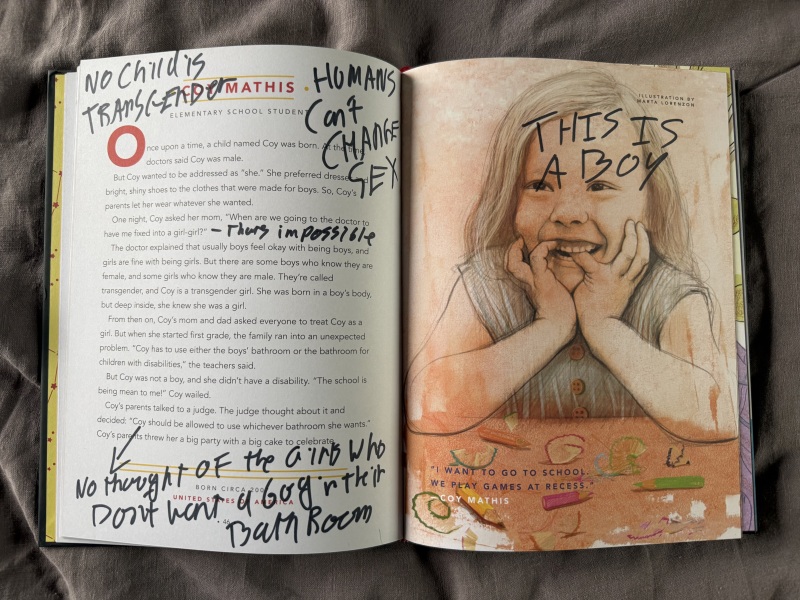 NO Child is
TRANSGENDER
HUMANS
Can't
CHANGE
SEX
COY MATHIS
ELEMENTARY SCHOOL STUDENT
Once upon a time, a child named Coy was born. At the time,
doctors said Coy was male.
But Coy wanted to be addressed as “she.” She preferred dresses and
bright, shiny shoes to the clothes that were made for boys. So, Coy’s
parents let her wear whatever she wanted.
One night, Coy asked her mom, “When are we going to the doctor to
have me fixed into a girl-girl?” – Thats impossible
The doctor explained that usually boys feel okay with being boys, and
girls are fine with being girls. But there are some boys who know they are
female, and some girls who know they are male. They’re called
transgender, and Coy is a transgender girl. She was born in a boy’s body,
but deep inside, she knew she was a girl.
From then on, Coy’s mom and dad asked everyone to treat Coy as a
girl. But when she started first grade, the family ran into an unexpected
problem. “Coy has to use either the boys’ bathroom or the bathroom for
children with disabilities,” the teachers said.
But Coy was not a boy, and she didn’t have a disability. “The school is
being mean to me!” Coy wailed.
Coy’s parents talked to a judge. The judge thought about it and
decided: “Coy should be allowed to use whichever bathroom she wants.”
Coy’s parents threw her a big party with a big cake to celebrate.
No thought OF the Girls who
Dont want a boy in their
BathRoom
BORN CIRCA
UNITED STATES OF AMERICA
46
ILLUSTRATION BY
MARTA LORENZON
THIS IS
A BOY
“I WANT TO GO TO SCHOOL.
WE PLAY GAMES AT RECESS.”
COY MATHIS